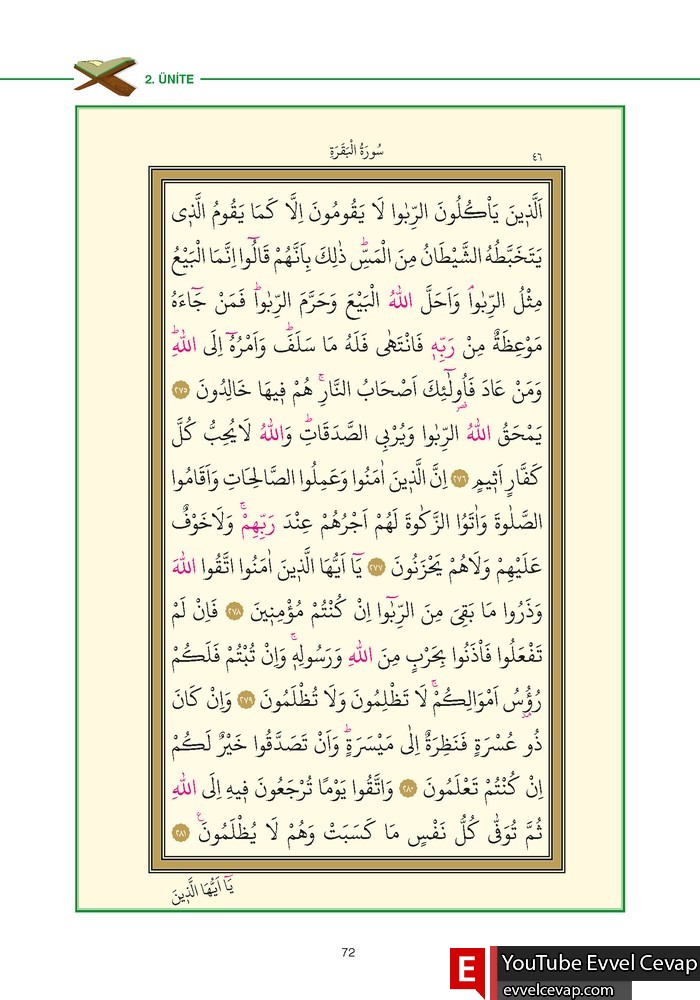 2. ÜNİTE
سُورَةُ الْبَقَرَةِ
٤٦
اَلَّذ۪ينَ يَأْكُلُونَ الرِّبٰوا لَا يَقُومُونَ اِلَّا كَمَا يَقُومُ الَّذ۪ى
يَتَخَبَّطُهُ الشَّيْطَانُ مِنَ الْمَسِّۜ ذٰلِكَ بِاَنَّهُمْ قَالُٓوا اِنَّمَا الْبَيْعُ
مِثْلُ الرِّبٰواۢ وَاَحَلَّ اللّٰهُ الْبَيْعَ وَحَرَّمَ الرِّبٰواۜ فَمَنْ جَٓاءَهُ
مَوْعِظَةٌ مِنْ رَبِّه۪ فَانْتَهٰى فَلَهُ مَا سَلَفَۜ وَاَمْرُهُٓ اِلَى اللّٰهِۜ
وَمَنْ عَادَ فَاُولٰٓئِكَ اَصْحَابُ النَّارِۚ هُمْ ف۪يهَا خَالِدُونَ ﴿٢٧٥﴾
يَمْحَقُ اللّٰهُ الرِّبٰوا وَيُرْبِى الصَّدَقَاتِۜ وَاللّٰهُ لَا يُحِبُّ كُلَّ
كَفَّارٍ اَث۪يمٍ ﴿٢٧٦﴾ اِنَّ الَّذ۪ينَ اٰمَنُوا وَعَمِلُوا الصَّالِحَاتِ وَاَقَامُوا
الصَّلٰوةَ وَاٰتَوُا الزَّكٰوةَ لَهُمْ اَجْرُهُمْ عِنْدَ رَبِّهِمْۚ وَلَا خَوْفٌ
عَلَيْهِمْ وَلَا هُمْ يَحْزَنُونَ ﴿٢٧٧﴾ يَٓا اَيُّهَا الَّذ۪ينَ اٰمَنُوا اتَّقُوا اللّٰهَ
وَذَرُوا مَا بَقِىَ مِنَ الرِّبٰٓوا اِنْ كُنْتُمْ مُؤْمِن۪ينَ ﴿٢٧٨﴾ فَاِنْ لَمْ
تَفْعَلُوا فَأْذَنُوا بِحَرْبٍ مِنَ اللّٰهِ وَرَسُولِه۪ۚ وَاِنْ تُبْتُمْ فَلَكُمْ
رُؤُ۫سُ اَمْوَالِكُمْۚ لَا تَظْلِمُونَ وَلَا تُظْلَمُونَ ﴿٢٧٩﴾ وَاِنْ كَانَ
ذُو عُسْرَةٍ فَنَظِرَةٌ اِلٰى مَيْسَرَةٍۜ وَاَنْ تَصَدَّقُوا خَيْرٌ لَكُمْ
اِنْ كُنْتُمْ تَعْلَمُونَ ﴿٢٨٠﴾ وَاتَّقُوا يَوْمًا تُرْجَعُونَ ف۪يهِ اِلَى اللّٰهِ
ثُمَّ تُوَفّٰى كُلُّ نَفْسٍ مَا كَسَبَتْ وَهُمْ لَا يُظْلَمُونَ۟ ﴿٢٨١﴾
يَٓا اَيُّهَا الَّذ۪ينَ
72
E YouTube Evvel Cevap
evvelcevap.com